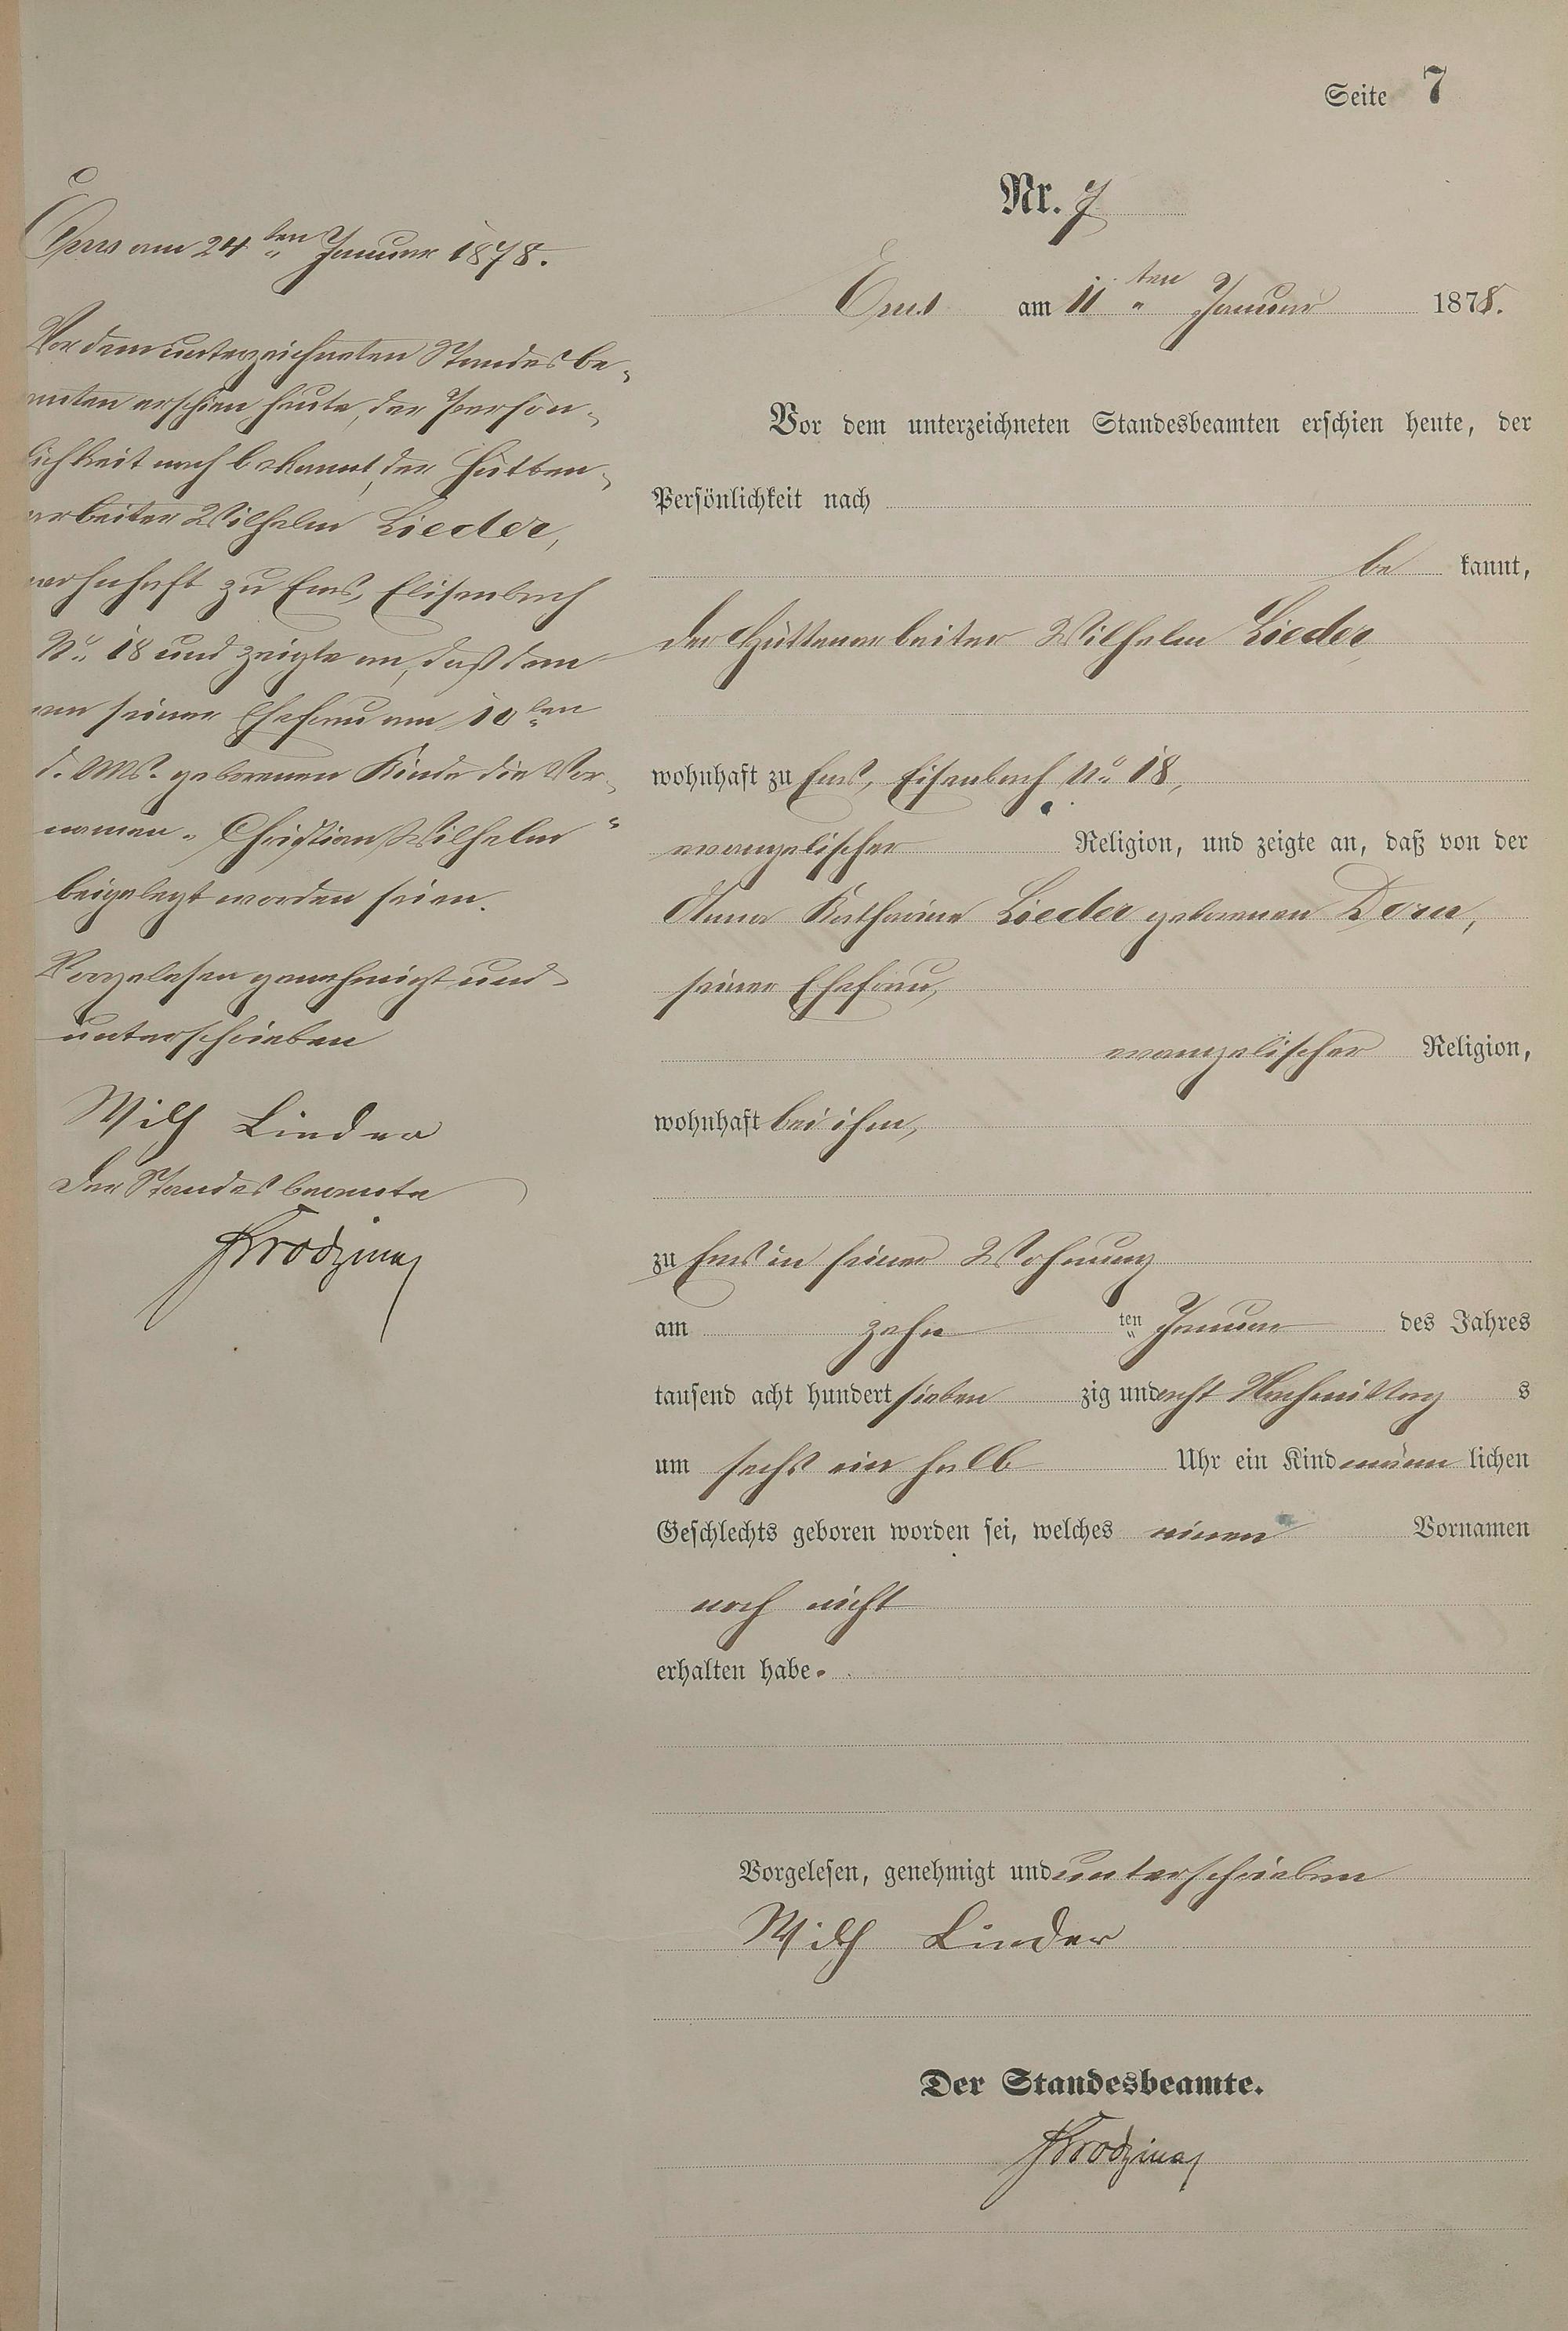 Seite 7
Nr. 7
Ems am 11ten Januar 1878.
Vor dem unterzeichneten Standesbeamten erschien heute, der
Persönlichkeit nach
be kannt,
der Hüttenarbeiter Wilhelm Lieder,
wohnhaft zu Ems, Eisenbach No 18,
evangelischer Religion, und zeigte an, daß von der
Anna Katharina Lieder geborenen Dorn,
seiner Ehefrau,
evangelischer Religion,
wohnhaft bei ihm,
zu Ems in seiner Wohnung
am zehn ten Januar des Jahres
tausend acht hundert sieben zig und acht Nachmittag s
um sechs ein halb Uhr ein Kind männ lichen
Geschlechts geboren worden sei, welches einen Vornamen
noch nicht
erhalten habe.
Vorgelesen, genehmigt und unterschrieben
Wilh Lieder
Der Standesbeamte.
Ems am 24ten Januar 1878.
Vor dem unterzeichneten Standesbe-
amten erschien heute, der Persön-
lichkeit nach bekannt, der Hütten-
arbeiter Wilhelm Lieder,
wohnhaft zu Ems, Elisenbach
No 18 und zeigte an, daß dem
von seiner Ehefrau am 10ten
d. Mts. geborenen Kinde die Vor-
namen „Christian Wilhelm“
beigelegt worden seien.
Vorgelesen genehmigt und
unterschrieben
Wilh Lieder
Der Standesbeamte